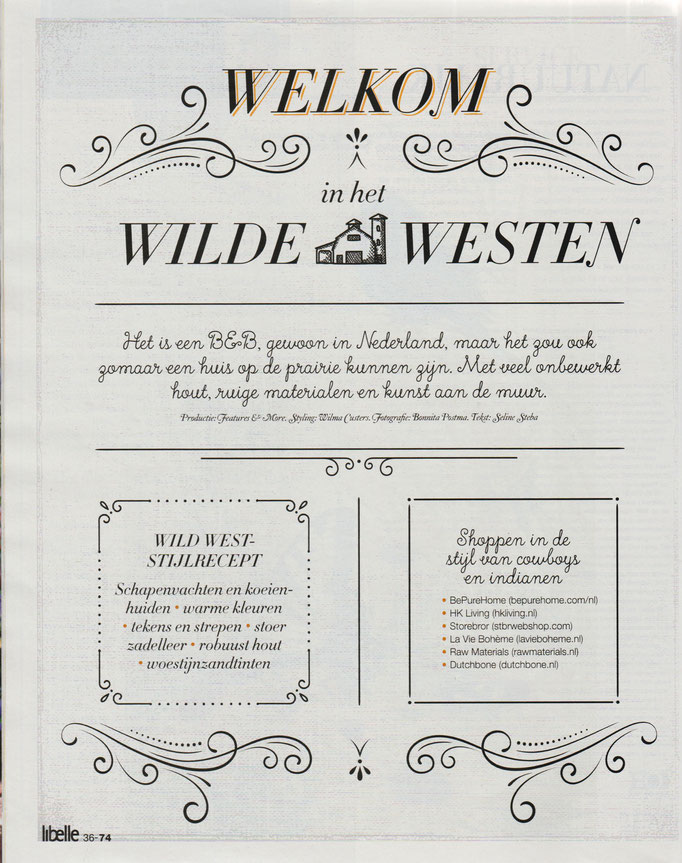 WELKOM
in het
WILDE WESTEN
Het is een B&B, gewoon in Nederland, maar het zou ook
zomaar een huis op de prairie kunnen zijn. Met veel onbewerkt
hout, ruige materialen en kunst aan de muur.
Productie: Features & More. Styling: Wilma Custers. Fotografie: Bonnita Postma. Tekst: Seline Steba
WILD WEST-
STIJLRECEPT
Schapenvachten en koeien-
huiden • warme kleuren
• tekens en strepen • stoer
zadelleer • robuust hout
• woestijnzandtinten
Shoppen in de
stijl van cowboys
en indianen
• BePureHome (bepurehome.com/nl)
• HK Living (hkliving.nl)
• Storebror (stbrwebshop.com)
• La Vie Bohème (lavieboheme.nl)
• Raw Materials (rawmaterials.nl)
• Dutchbone (dutchbone.nl)
libelle 36-74